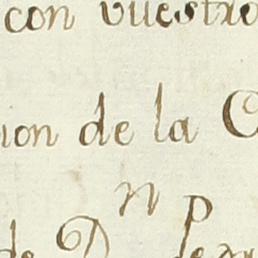 con vuestro
ion de la C
n
de D. de